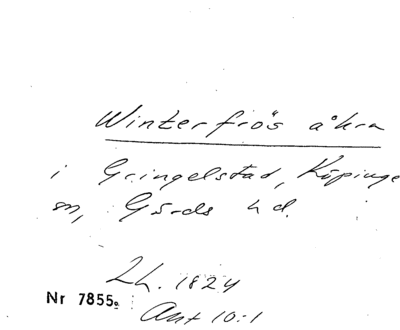 Winterfrös åkra
i Gringelstad, Köpinge
sn, Gärds hd.
Lh. 1824
Nr 7855.
Akt 10:1